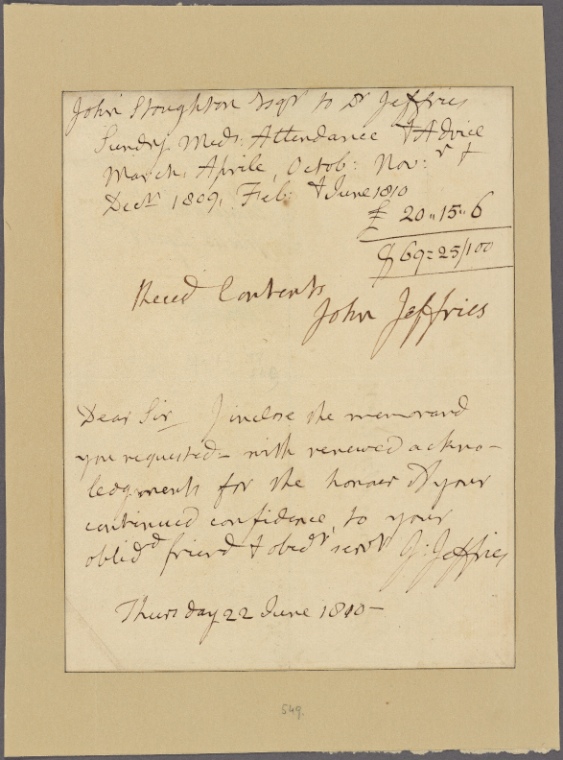 John Stoughton Esqr to Dr Jeffries
Sundry Medl: Attendance & Advice
March, Aprile, Octob: Nov:r &
Decr 1809, Feb: & June 1810
£ 20"15"6
$ 69=25/100
Reced Contents
John Jeffries
Dear Sir I inclose the memorand
you requested - with renewed ackno-
ledgments for the honour of your
continued confidence, to your
oblig'd friend & obedt servt J: Jeffries
Thursday 22 June 1810 -
549.